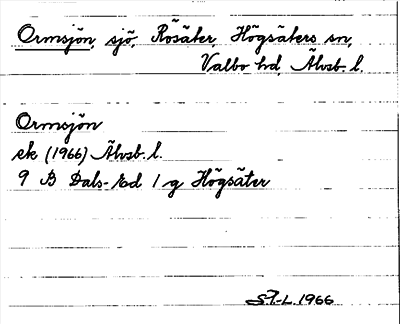 Ormsjön, sjö, Rösäter, Högsäters sn,
Valbo hd, Älvsb. l.
Ormsjön
ek (1966) Älvsb. l.
9 B Dals-Ed 1 g Högsäter
1966